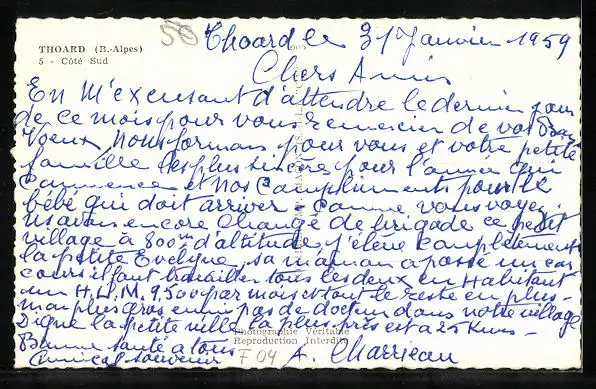 THOARD (B.-Alpes)
5 - Côté Sud
50
Thoard le 31 Janvier 1959
Chers Amis
En M'excusant d'attendre le dernier jour
de ce mois pour vous remercier de vos Bons
Voeux Nous formons pour vous et votre petite
famille les plus sincères pour l'année qui
commence et nos compliments pour le
bébé qui doit arriver comme vous voyez
ns avons encore changé de brigade ce petit
village à 800m d'altitude, j'élève complètement
la petite Evelyne, sa maman a passé un con
cours il faut travailler tous les deux en Habitant
un H.L.M. 9.500 par mois et tout le reste en plus -
mon plus gros ennui pas de docteur dans notre village
Digne la petite ville la plus près est à 25 Kms -
Bonne santé à tous
Amical souvenir
A. Charrieau
Photographie Véritable
Reproduction Interdite
F 04